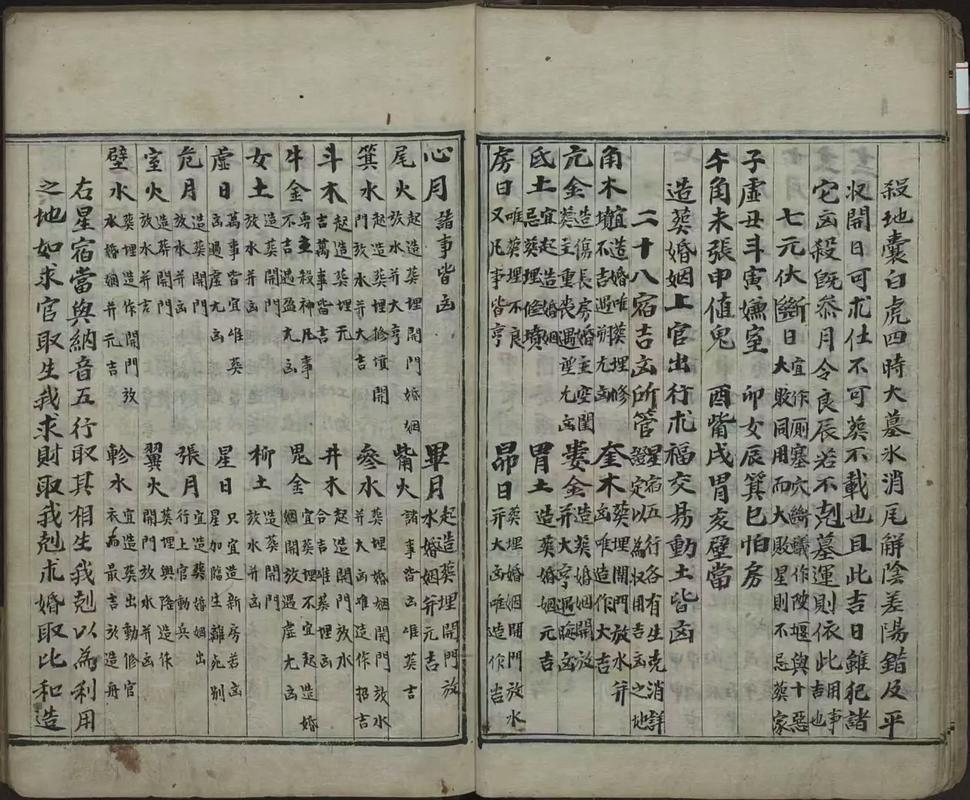 殺地囊白虎四時大墓氷消尾解陰差陽錯反平
収開日可求仕不可葬不載也且此吉日雖犯諸
它凶殺既叅月令良辰若不剋墓運則依此用事吉也
七元伏斷日宜作厠塞穴斷蟻作陂堰與十惡
大敗同用而大敗星則不忌葬家
子虛丑斗寅嫌室 卯女辰箕巳怕房
午角未張申值鬼 酉觜戌胃亥壁當
造葬婚姻上官出行求福交易動土皆凶
二十八宿吉凶所管星宿五行各有生克消詳
證定以為収用吉凶之地
角木宜造婚唯葬埋修
墳不吉遇朔尤凶
亢金造傷長房婚主空閨
葬主重丧遇望尤凶
氐土宜起造婚姻
忌葬埋修墳
房日唯葬埋不良
又凡事皆亨
奎木葬埋開門放水并
凶唯造作大吉
婁金造葬婚姻開放
并大亨遇晦凶
胃土造葬婚姻元吉
昴日葬埋婚姻開門放水
并大凶唯造作吉
心月諸事皆凶
尾火起造葬埋開門婚姻
放水并大亨
箕水起造葬埋修墳開
門放水并大吉
斗木起造葬埋元
吉萬事皆吉
牛金專主殺神凡事
不吉遇盈尤凶
女土造葬開門
放水并凶
虛日萬事皆宜唯葬
凶遇虛尤凶
危月造葬開門
放水并凶
室火造葬開門
放水并吉
壁水葬埋造作開門放
水婚姻并元吉
畢月起造葬埋開門放
水婚姻并元吉
觜火諸事皆凶唯葬吉
參水葬埋婚姻開門放水
并大凶唯造作招吉
井木起造開門放水
合吉唯葬埋凶
鬼金宜葬埋不宜起造婚
姻開放遇虛尤凶
柳土造葬開門
放水并凶
星日只宜造新房若凶
星加臨生離死別
張月宜造葬婚姻出
行上官動兵
翼火葬埋與陰造作
開門放水并凶
軫水宜造葬出動修官
衣為最吉於造舟
右星宿當與納音五行取其相生我剋以為利用
之地如求官取生我求財取我剋求婚取比和造